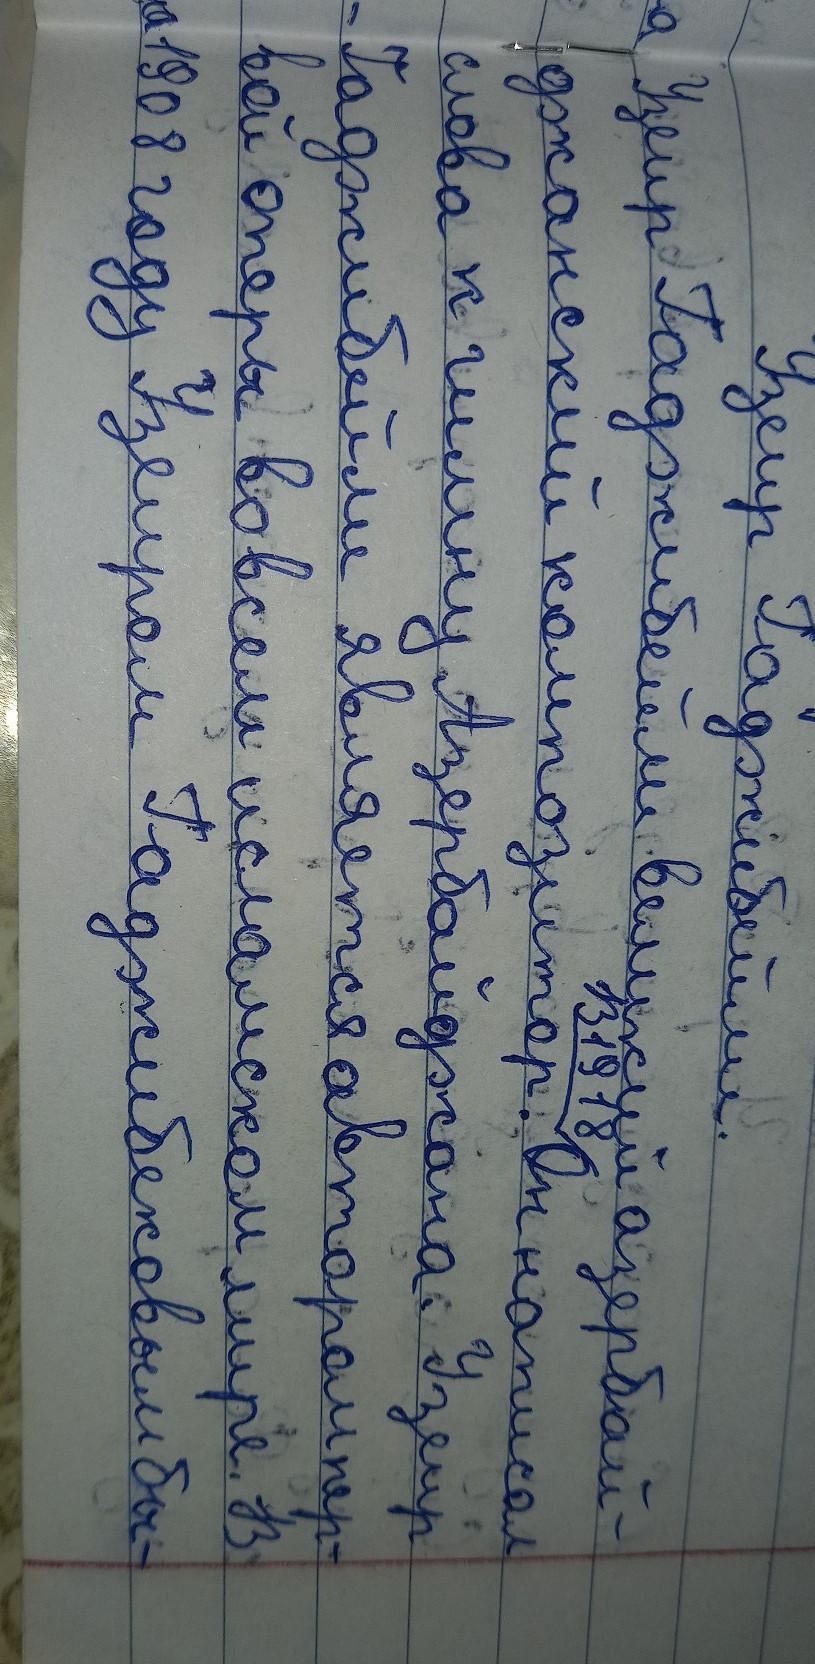 Узеир Гаджибейли.
Узеир Гаджибейли великий азербай-
джанский композитор. В 1918 Он написал
слова к гимну Азербайджана. Узеир
Гаджибейли является автором пер-
вой оперы во всем исламском мире. В
1908 году Узеиром Гаджибековым бы-